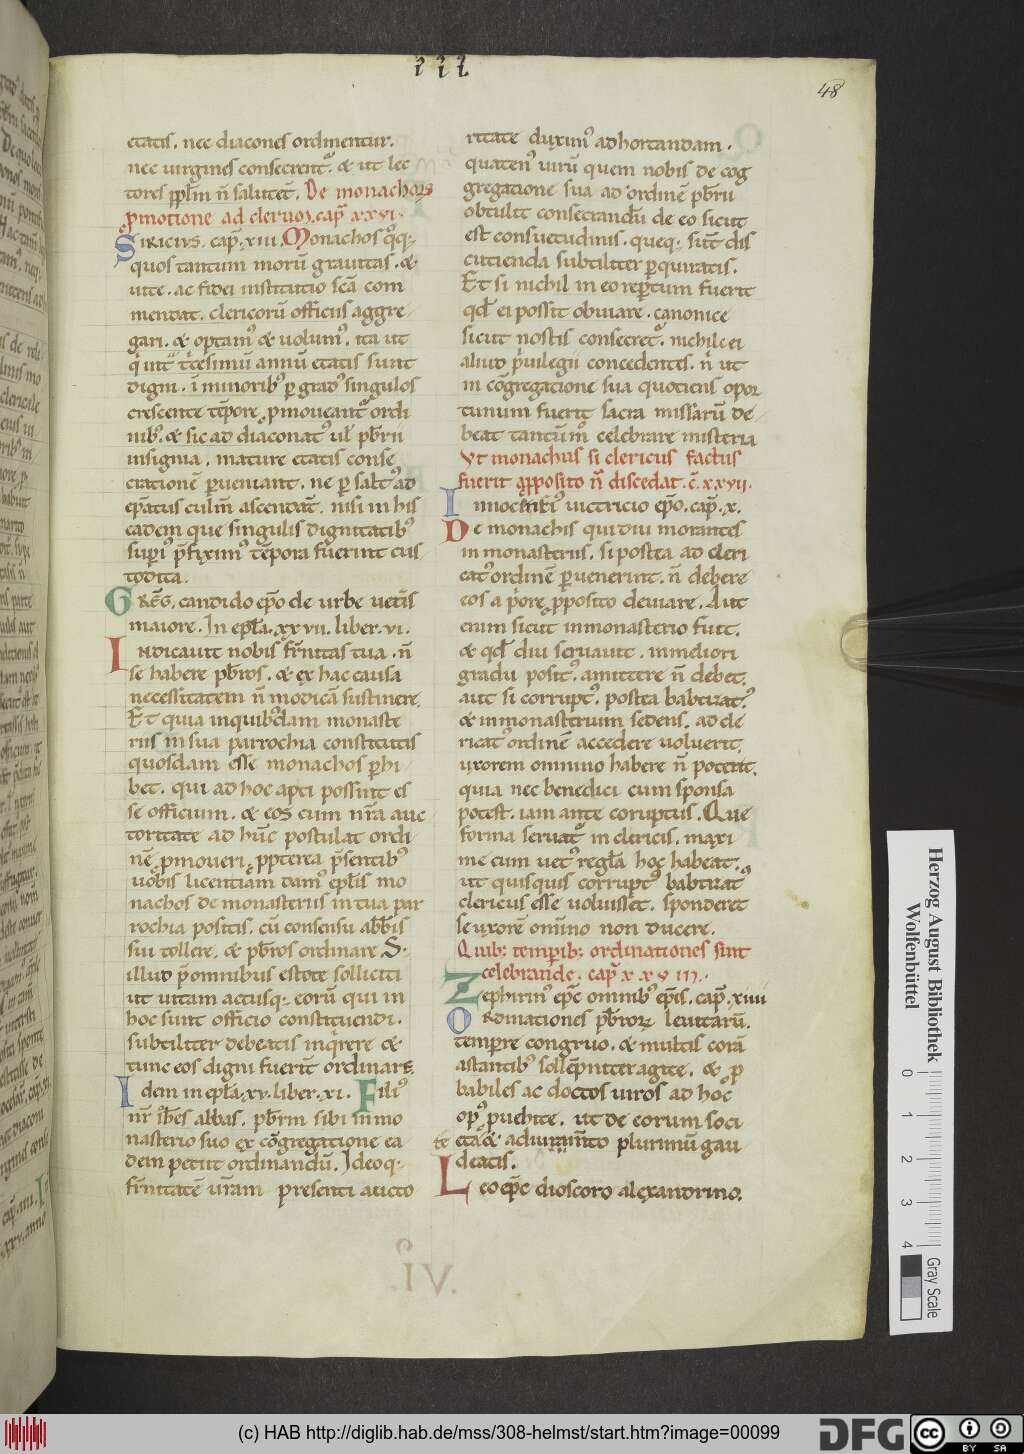 iii
48
etatis. nec diacones ordinentur.
nec uirgines consecrent̃. & ut lec
tores ppl̃m ñ salutet̃. De monachoꝝ
ꝓmotione ad clerum. cap̃ xxvi.
Siricivs. cap̃. xiii. Monachos q̊q;
quos tantum morũ grauitas. &
uite. ac fidei institutio scã com
mendat. clericorũ officiis aggre
gari. & optamꝰ & uolumꝰ. ita ut
q̇ int̃ t̃cesimũ annũ etatis sunt
digni. ĩ minoribꝰ ꝑ gradꝰ singulos
crescente tẽpore ꝓmoueant̃ ordi
nibꝰ. & sic ad diaconatꝰ ul̃ pb̃rii
insignia. mature etatis conse
cratione ꝑueniant. ne ꝑ saltꝰ ad
ep̃atus culm̃ ascendat̃. nisi in his
eadem que singulis dignitatibꝰ
supiꝰ p̃fiximꝰ tẽpora fuerint cus
todita.
Greg̃. candido ep̃o de urbe uet̃is
maiore. In epl̃a. xxvii. liber. vi.
Indicauit nobis fr̃nitas tua. ñ
se habere pb̃ros. & ex hac causa
necessitatem ñ modicã sustinere.
Et quia in quibꝰdam monaste
riis in sua parrochia constitutis
quosdam esse monachos ꝑhi
bet. qui ad hoc apti possint es
se officium. & eos cum nr̃a auc
toritate ad hũc postulat ordi
nẽ ꝓmoueri. ꝓpterea p̃sentibꝰ
uobis licentiam damꝰ epl̃is mo
nachos de monasteriis in tua par
rochia positis. cũ consensu abb̃is
sui tollere. & pb̃ros ordinare. S;
illud p̃ omnibus estote solliciti
ut uitam actusq; eorũ qui in
hoc sunt officio constituendi.
subtiliter debeatis inq̇rere &
tunc eos digni fuerĩt ordinare.
Idem in epl̃a. xv. liber. xi. Filiꝰ
nr̃ ib̃es abbas. pb̃rm sibi in mo
nasterio suo ex cõgregatione ea
dem petiit ordinandũ. Ideoq;
fr̃nitatẽ ur̃am presenti aucto
ritate duximꝰ adhortandam.
quatenꝰ uirũ quem nobis de cog
gregatione sua ad ordinẽ pb̃rii
obtulit consecrandũ de eo sicut
est consuetudinis. queq; sũt dis
cutienda subtiliter ꝑquiratis.
Et si nichil in eo reꝑtum fuerit
qd̃ ei possit obuiare. canonice
sicut nostis consecret̃. nichil ei
aliud p̃uilegii concedentes. ñ ut
in cõgregatione sua quotiens opor
tunum fuerit sacra missarũ de
beat tantũmꝰ celebrare misteria
Vt monachus si clericus factus
fuerit a ꝓposito ñ discedat. c̃. xxvii.
Innocentiꝰ uictricio ep̃o. cap̃. x.
De monachis qui diu morantes
in monasteriis. si postea ad cleri
catꝰ ordinẽ ꝑuenerint. ñ debere
eos a p̃ore ꝓposito deuiare. Aut
enim sicut in monasterio fuit.
& qd̃ diu seruauit. in meliori
gradu positꝰ. amittere ñ debet.
aut si corruptꝰ. postea babtizatꝰ.
& in monasterium sedens. ad cle
ricatꝰ ordinẽ accedere uoluerit.
uxorem omnino habere ñ poterit.
quia nec benedici cum sponsa
potest. iam ante coruptus. Que
forma seruat̃ in clericis. maxi
me cum uetꝰ regl̃a hoc habeat.
ut quisquis corruptꝰ babtizatꝰ
clericus esse uoluisset. sponderet
se uxorẽ om̃ino non ducere.
Quib; temꝑib; ordinationes sint
celebrande. cap̃ xxviii.
Zephirinꝰ ep̃c omnibꝰ ep̃is. cap̃. xiiii
Ordinationes pb̃roꝝ leuitarũ.
temꝑre congruo. & multis corã
astantibꝰ sollẽpniter agite. & ꝓ
babiles ac doctos uiros ad hoc
opꝰ puehite. ut de eorum soci
etate & adiuuamto plurimũ gau
deatis.
Leo ep̃c dioscoro alexandrino.
VI.
Herzog August Bibliothek
Wolfenbüttel
0 1 2 3 4
Gray Scale
(c) HAB http://diglib.hab.de/mss/308-helmst/start.htm?image=00099
DFG
cc BY SA